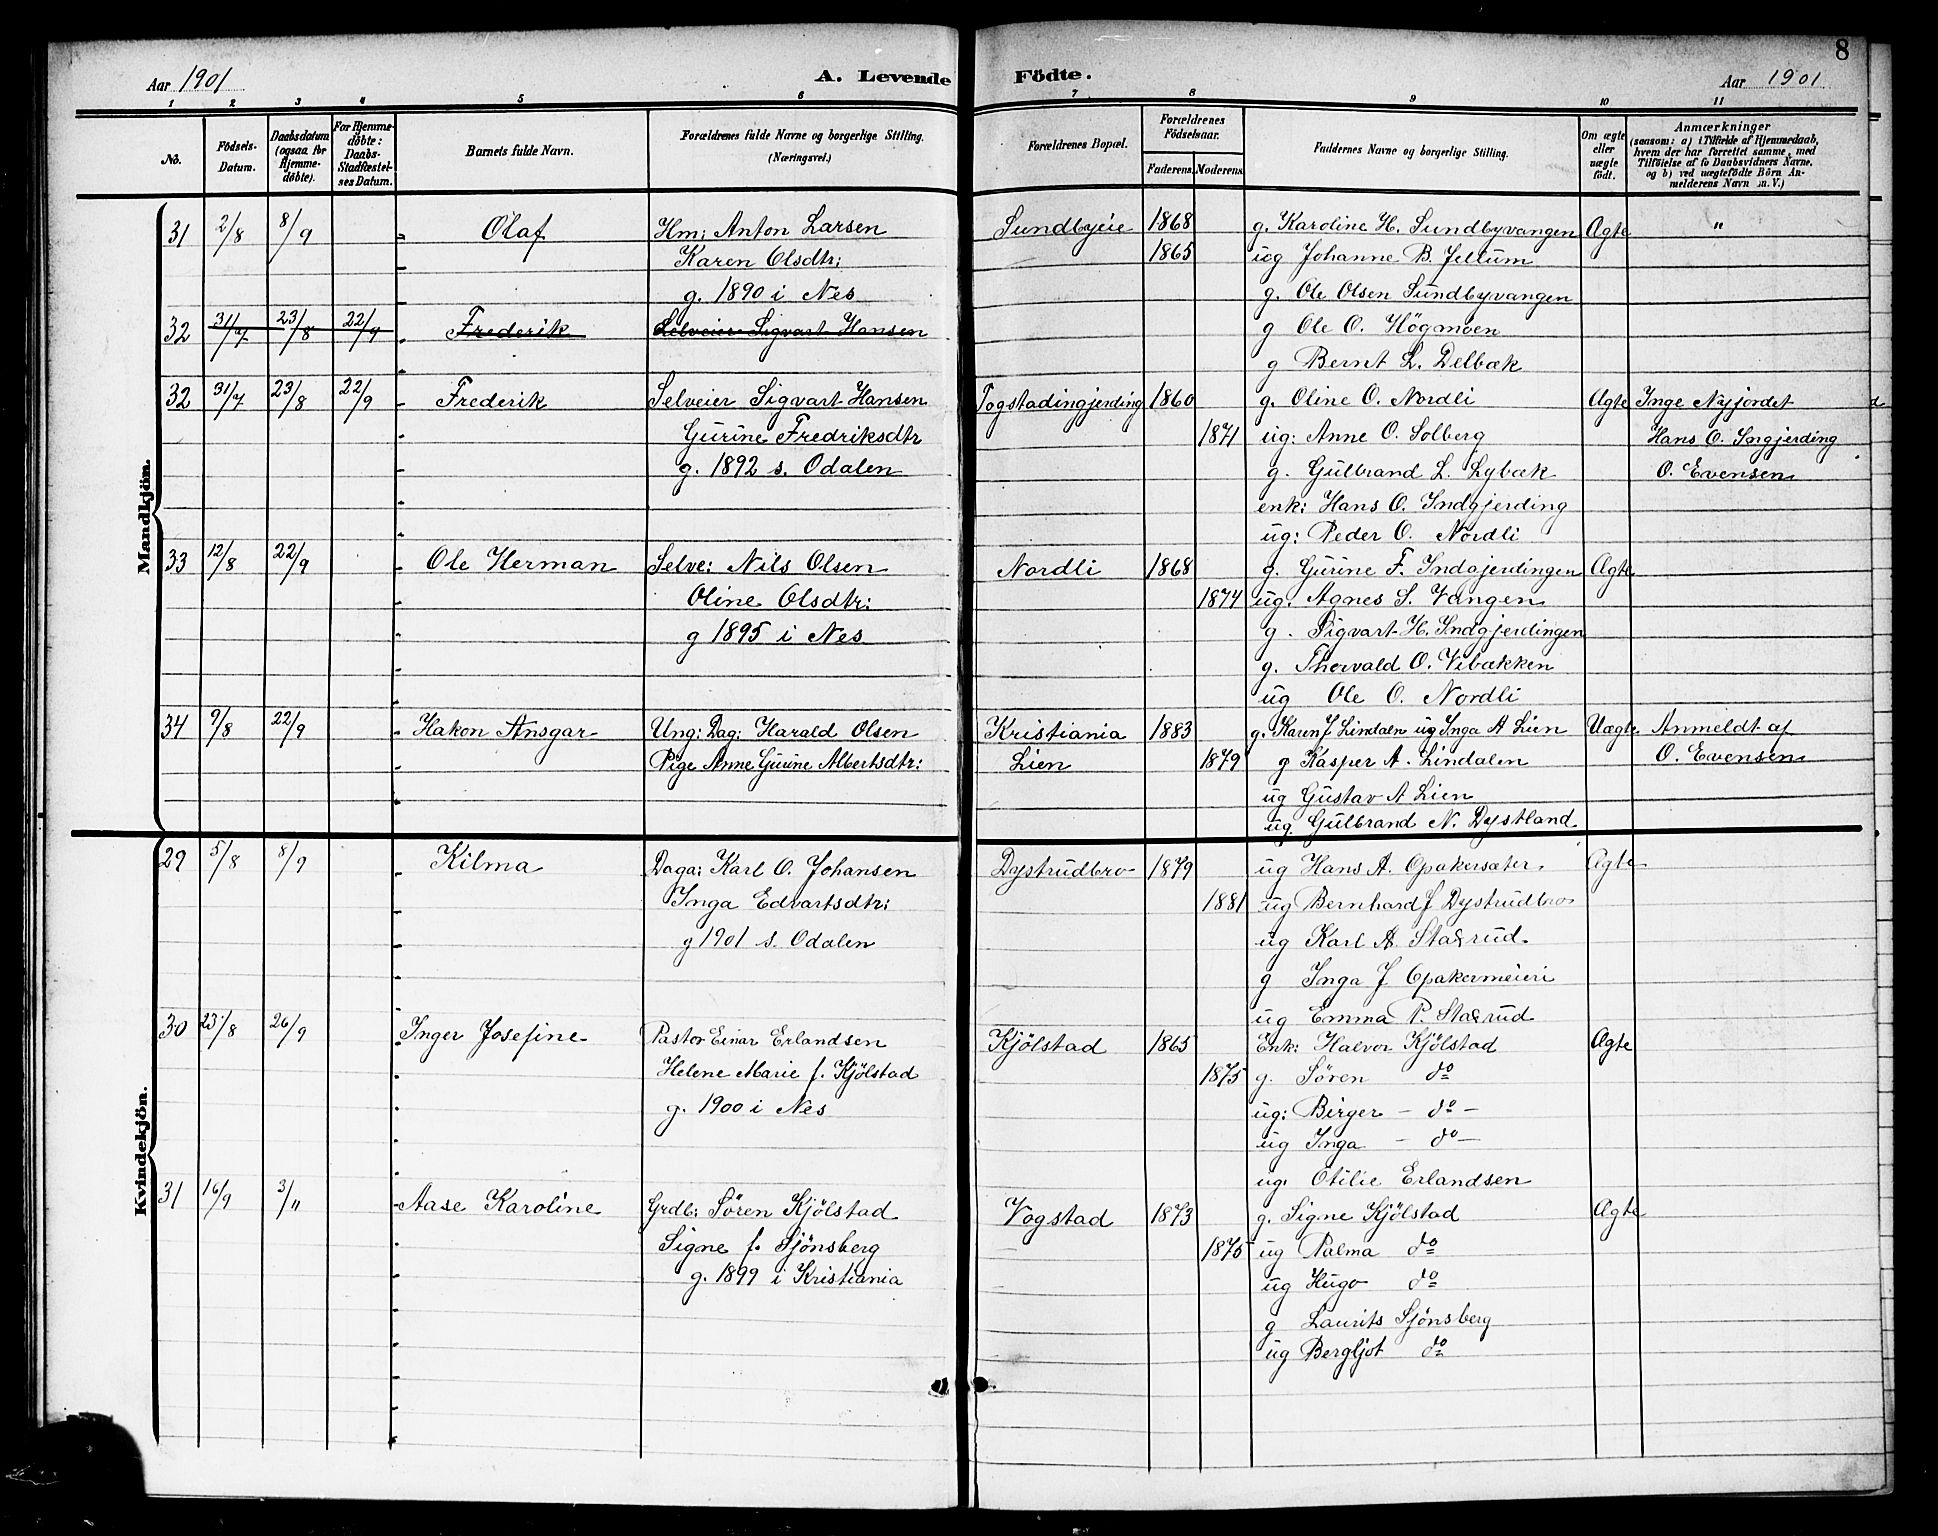 8
Aar 1901 A. Levende Födte. Aar 1901
1 2 3 4 5 6 7 8 9 10 11
No.
Födsels-Datum.
Daabsdatum (ogsaa for Hjemmedöbte).
For Hjemmedöbte: Daabs-Stadfæstelses Datum.
Barnets fulde Navn.
Forældrenes fulde Navne og borgerlige Stilling. (Næringsvei.)
Forældrenes Bopæl.
Forældrenes Födselsaar.
Faderens. Moderens.
Faddernes Navne og borgerlige Stilling.
Om ægte eller uægte födt.
Anmærkninger
(saasom: a) i Tilfælde af Hjemmedaab, hvem der har forrettet samme, med Tilföielse af to Daabsvidners Navne, og b) ved uægtefödte Börn Anmelderens Navn m. V.)
Mandkjön.
31 2/8 8/9 Olaf Hm: Anton Larsen Sundbyeie 1868 g. Karoline H. Sundbyvangen Ægte "
Karen Olsdtr: 1865 ug Johanne B. Jellum
g. 1890 i Nes g. Ole Olsen Sundbyvangen
32 31/7 23/8 22/9 Frederik Selveier Sigvart Hansen g Ole O. Högmoen
g Bernt L. Delbæk
32 31/7 23/8 22/9 Frederik Selveier Sigvart Hansen Togstadingjerding 1860 g. Oline O. Nordli Ægte Inge Nyjordet
Gurine Fredriksdtr 1871 ug: Anne O. Solberg Hans O. Ingjerding
g. 1892 s. Odalen g. Gulbrand L. Lybæk O. Evensen
enk: Hans O. Indgjerding
ug: Peder O. Nordli
33 12/8 22/9 Ole Herman Selve: Nils Olsen Nordli 1868 g. Gurine F. Indgjerdingen Ægte
Oline Olsdtr: 1874 ug. Agnes S. Vangen
g 1895 i Nes g. Sigvart H. Indgjerdingen
g. Thorvald O. Vibakken
ug Ole O. Nordli
34 9/8 22/9 Hakon Ansgar Ung: Dag: Harald Olsen Kristiania 1883 g. Karen J Lindalen ug Inga A Lien Uægte Anmeldt af
Pige Anne Gurine Albertsdtr: Lien 1879 g Kasper A. Lindalen O. Evensen
ug Gustav A Lien
ug. Gulbrand N. Dystland
Kvindekjön.
29 5/8 8/9 Kilma Daga: Karl O. Johansen Dystrudbro 1879 ug Hans A. Opakersæter Ægte
Inga Edvartsdtr: 1881 ug Bernhard J Dystrudbro
g 1901 s. Odalen ug Karl A. Staxrud
g Inga J Opakermeieri
ug Emma P. Staxrud
30 23/8 26/9 Inger Josefine Pastor Einar Erlandsen Kjölstad 1865 Enk: Halvor Kjölstad Ægte
Helene Marie f. Kjölstad 1875 g. Sören do
g. 1900 i Nes ug: Birger – do –
ug Inga – do –
ug. Otilie Erlandsen
31 16/9 3/11 Aase Karoline Grdb: Sören Kjölstad Vogstad 1873 g. Signe Kjölstad Ægte
Signe f. Sjönsberg 1875 ug Palma do
g. 1899 i Kristiania ug Hugo do
g Laurits Sjönsberg
ug Bergljot do